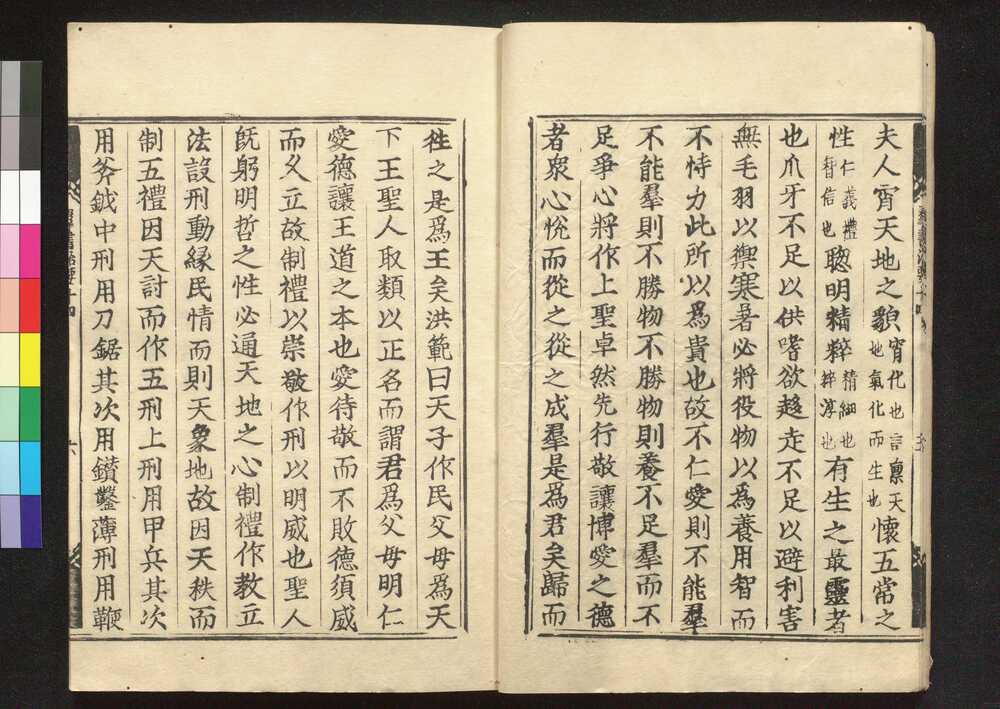 夫人宵天地之貌宵化也言禀天地氣化而生也懷五常之
性仁義禮智信也聦明精粹精細也粹淳也有生之最靈者
也爪牙不足以供嗜欲趍走不足以避利害
無毛羽以禦寒暑必將役物以爲養用智而
不恃力此所以爲貴也故不仁愛則不能羣
不能羣則不勝物不勝物則養不足羣而不
足爭心將作上聖卓然先行敬讓博愛之德
者衆心恱而從之從之成羣是爲君矣歸而
徃之是爲王矣洪範曰天子作民父母爲天
下王聖人取類以正名而謂君爲父母明仁
愛德讓王道之本也愛待敬而不敗德須威
而久立故制禮以崇敬作刑以明威也聖人
旣躬明哲之性必通天地之心制禮作教立
法設刑動緣民情而則天象地故因天秩而
制五禮因天討而作五刑上刑用甲兵其次
用斧鉞中刑用刀鋸其次用鑚鑿薄刑用鞭
群書治要十四
六